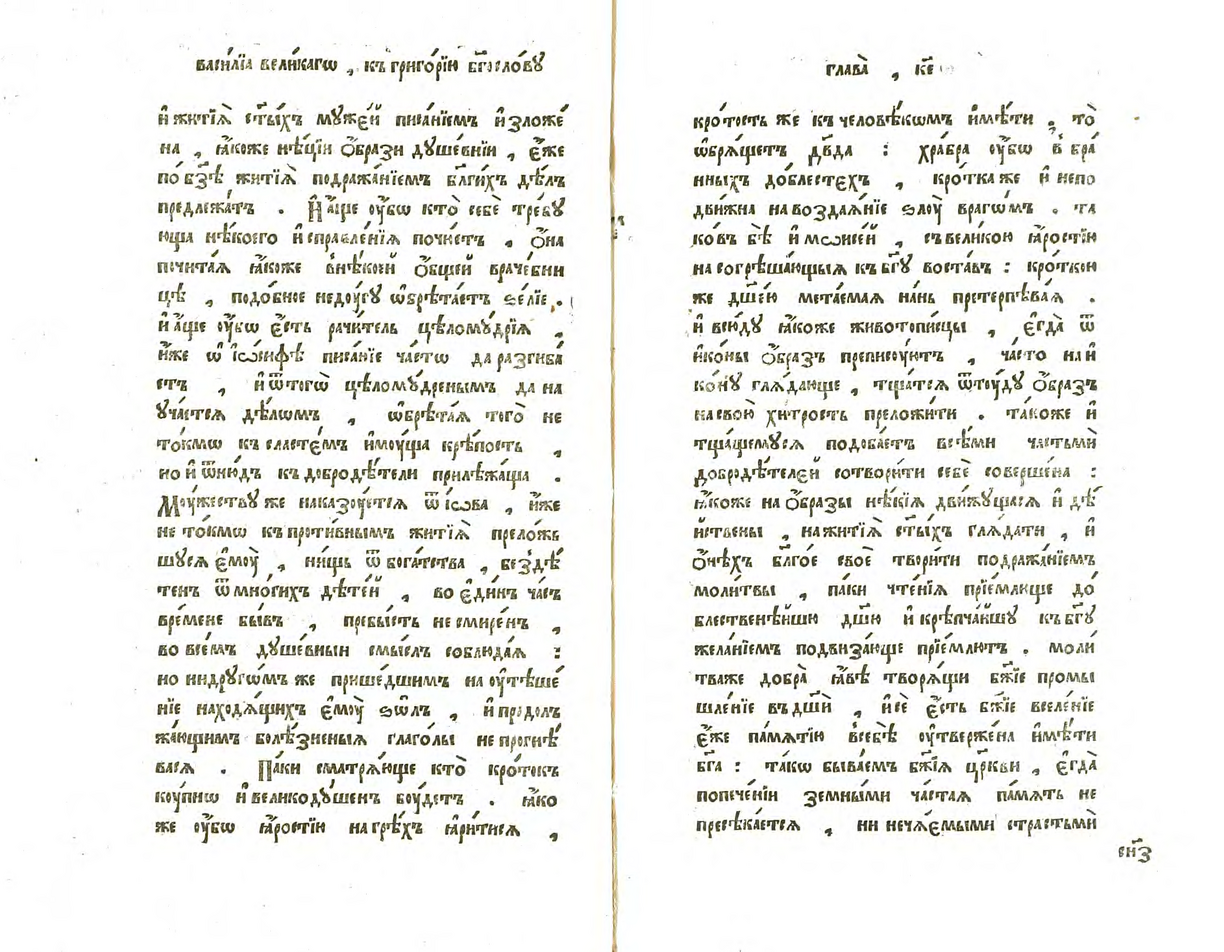 васи́лїа вели́кагѡ , къ григо́рїю бг҃осло́вꙋ
и҆ жи́тїѧ̀ ст҃ы́хъ мꙋже́й писа́нїемъ и҆зложе́
на , ꙗ҆́коже нѣ́цїи ѻ҆́брази дꙋше́внїи , є҆́же
по бз҃ѣ жи́тїѧ̀ подража́нїемъ бл҃ги́хъ дѣ́лъ
предлежа́тъ . И҆ а҆́ще оу҆́бо кто̀ себѐ тре́бꙋ
юща нѣ́коего и҆справле́нїѧ почи́етъ , ѻ҆́на
почита́ѧ ꙗ҆́коже в̾нѣ́коей ѻ҆́бщей враче́бни
цѣ , подо́бное недоу́гꙋ ѡ҆брѣта́етъ ѕе́лїе .
и҆ а҆́ще оу҆́бо є҆́сть рачи́тель цѣломꙋ́дрїѧ ,
и҆́же ѡ҆ і҆ѡ́сифѣ писа́нїе ча́стѡ да разгиба́
етъ , и҆ ѿ тогѡ̀ цѣломꙋ́дренымъ да на
ꙋча́етсѧ дѣ́лѡмъ , ѡ҆брѣта́ѧ того̀ не
то́кмѡ къ сласте́мъ и҆мꙋ́ща крѣ́пость ,
но и҆ ѿню́дъ къ добродѣ́тели прилѣжа́ща .
Моу́жествꙋ же наказоу́етсѧ ѿ і҆́ѡва , и҆́же
не то́кмѡ къ проти́внымъ жи́тїѧ̀ прело́жь
шꙋсѧ є҆моу̀ , ни́щь ѿ бога́тства , безdѣ́
тенъ ѿ мно́гихъ дѣте́й , во є҆ди́нъ ча́съ
вре́мене бы́въ , пребы́сть не смире́нъ ,
во все́мъ дꙋше́вныи смы́слъ соблюда́ѧ :
но ни дрꙋгѡ́мъ же прише́дшимъ на оу҆тѣше́
нїе находѧ́щихъ є҆моу̀ ѕѡ́лъ , и҆ продол
жа́ющимъ болѣ́зненыѧ глаго́лы не прогнѣ́
васѧ . Па́ки сматрѧ́юще кто̀ кро́токъ
коу́пнѡ и҆ великодꙋ́шенъ боу́детъ . ꙗ҆́ко
же оу҆́бо ꙗ҆́ростїю на грѣ́хъ ꙗ҆ри́тисѧ ,
глава̀ , к҃е
кро́тость же къ человѣ́кѡмъ и҆мѣ́ти , то̀
ѡ҆брѧ́щетъ дв҃да : хра́бра оу҆́бѡ в̾ бра́
нныхъ до́блестехъ , кро́тка же и҆ непо
дви́жна на воздаѧ́нїе ѕлоу̀ врагѡ́мъ . та
ко́въ бѣ̀ и҆ мѡѵсе́й , съ вели́кою ꙗ҆́ростїю
на согрѣша́ющыѧ къ бг҃ꙋ воста́въ : кро́ткою
же дш҃ею мета́емаѧ на́нь претерпѣва́ѧ .
и҆ всю́дꙋ ꙗ҆́коже животопи́сцы , є҆гда̀ ѿ
и҆ко́ны ѻ҆́бразъ преписоу́ютъ , ча́сто на и҆
ко́нꙋ глѧ́дающе , тща́тсѧ ѿтоу́дꙋ ѻ҆́бразъ
на свою̀ хи́трость преложи́ти . та́коже и҆
тща́щемꙋсѧ подоба́етъ все́ми частьмѝ
добродѣ́телей сотвори́ти себѐ соверше́на :
ꙗ҆́коже на ѻ҆́бразы нѣ́кїѧ дви́жꙋщасѧ и҆ дѣ́
йствены , на жи́тїѧ ст҃ы́хъ глѧда́ти , и҆
ѻ҆́нѣхъ бл҃го́е своѐ твори́ти подража́нїемъ
моли́твы , па́ки чте́нїѧ прїе́млюще до́
блественѣ́йшю дш҃ю и҆ крѣпча́йшꙋ къ бг҃ꙋ
жела́нїемъ подвиза́юще прїе́млютъ . моли́
тва же добра̀ ꙗ҆́вѣ творѧ́щи бж҃їе промы
шле́нїе въ дш҃и , и҆ сѐ є҆́сть бж҃їе вселе́нїе
є҆́же па́мѧтїю в̾себѣ̀ оу҆твержена̀ и҆мѣ́ти
бг҃а : та́кѡ быва́емъ бж҃їѧ цр҃кви , є҆гда̀
попече́нїи земны́ми ча́стаѧ па́мѧть не
пресѣка́етсѧ , ни неча́ѧемыми страстьмѝ
сн҃з